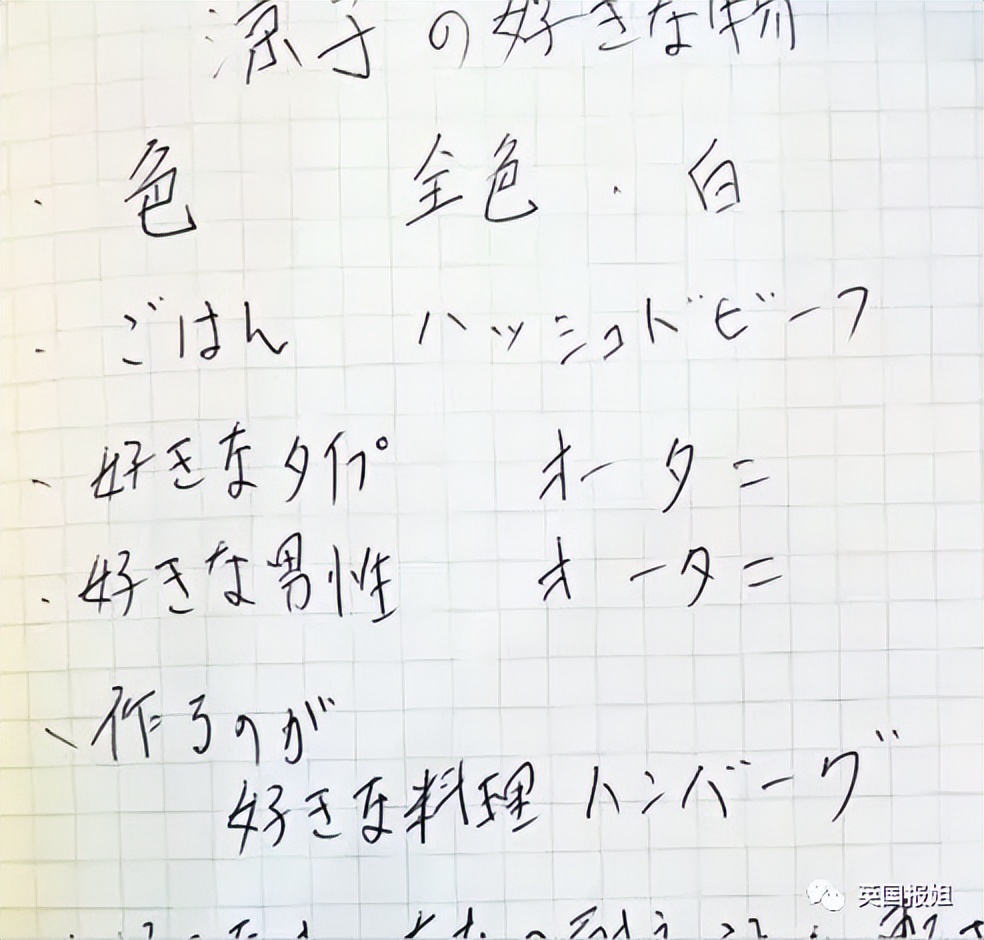 涼子の好きな物
・ 色 全色・白
・ ごはん ハッシュドビーフ
、 好きなタイプ オータニ
・ 好きな男性 オータニ
、 作るのが
好きな料理 ハンバーグ
英国报姐